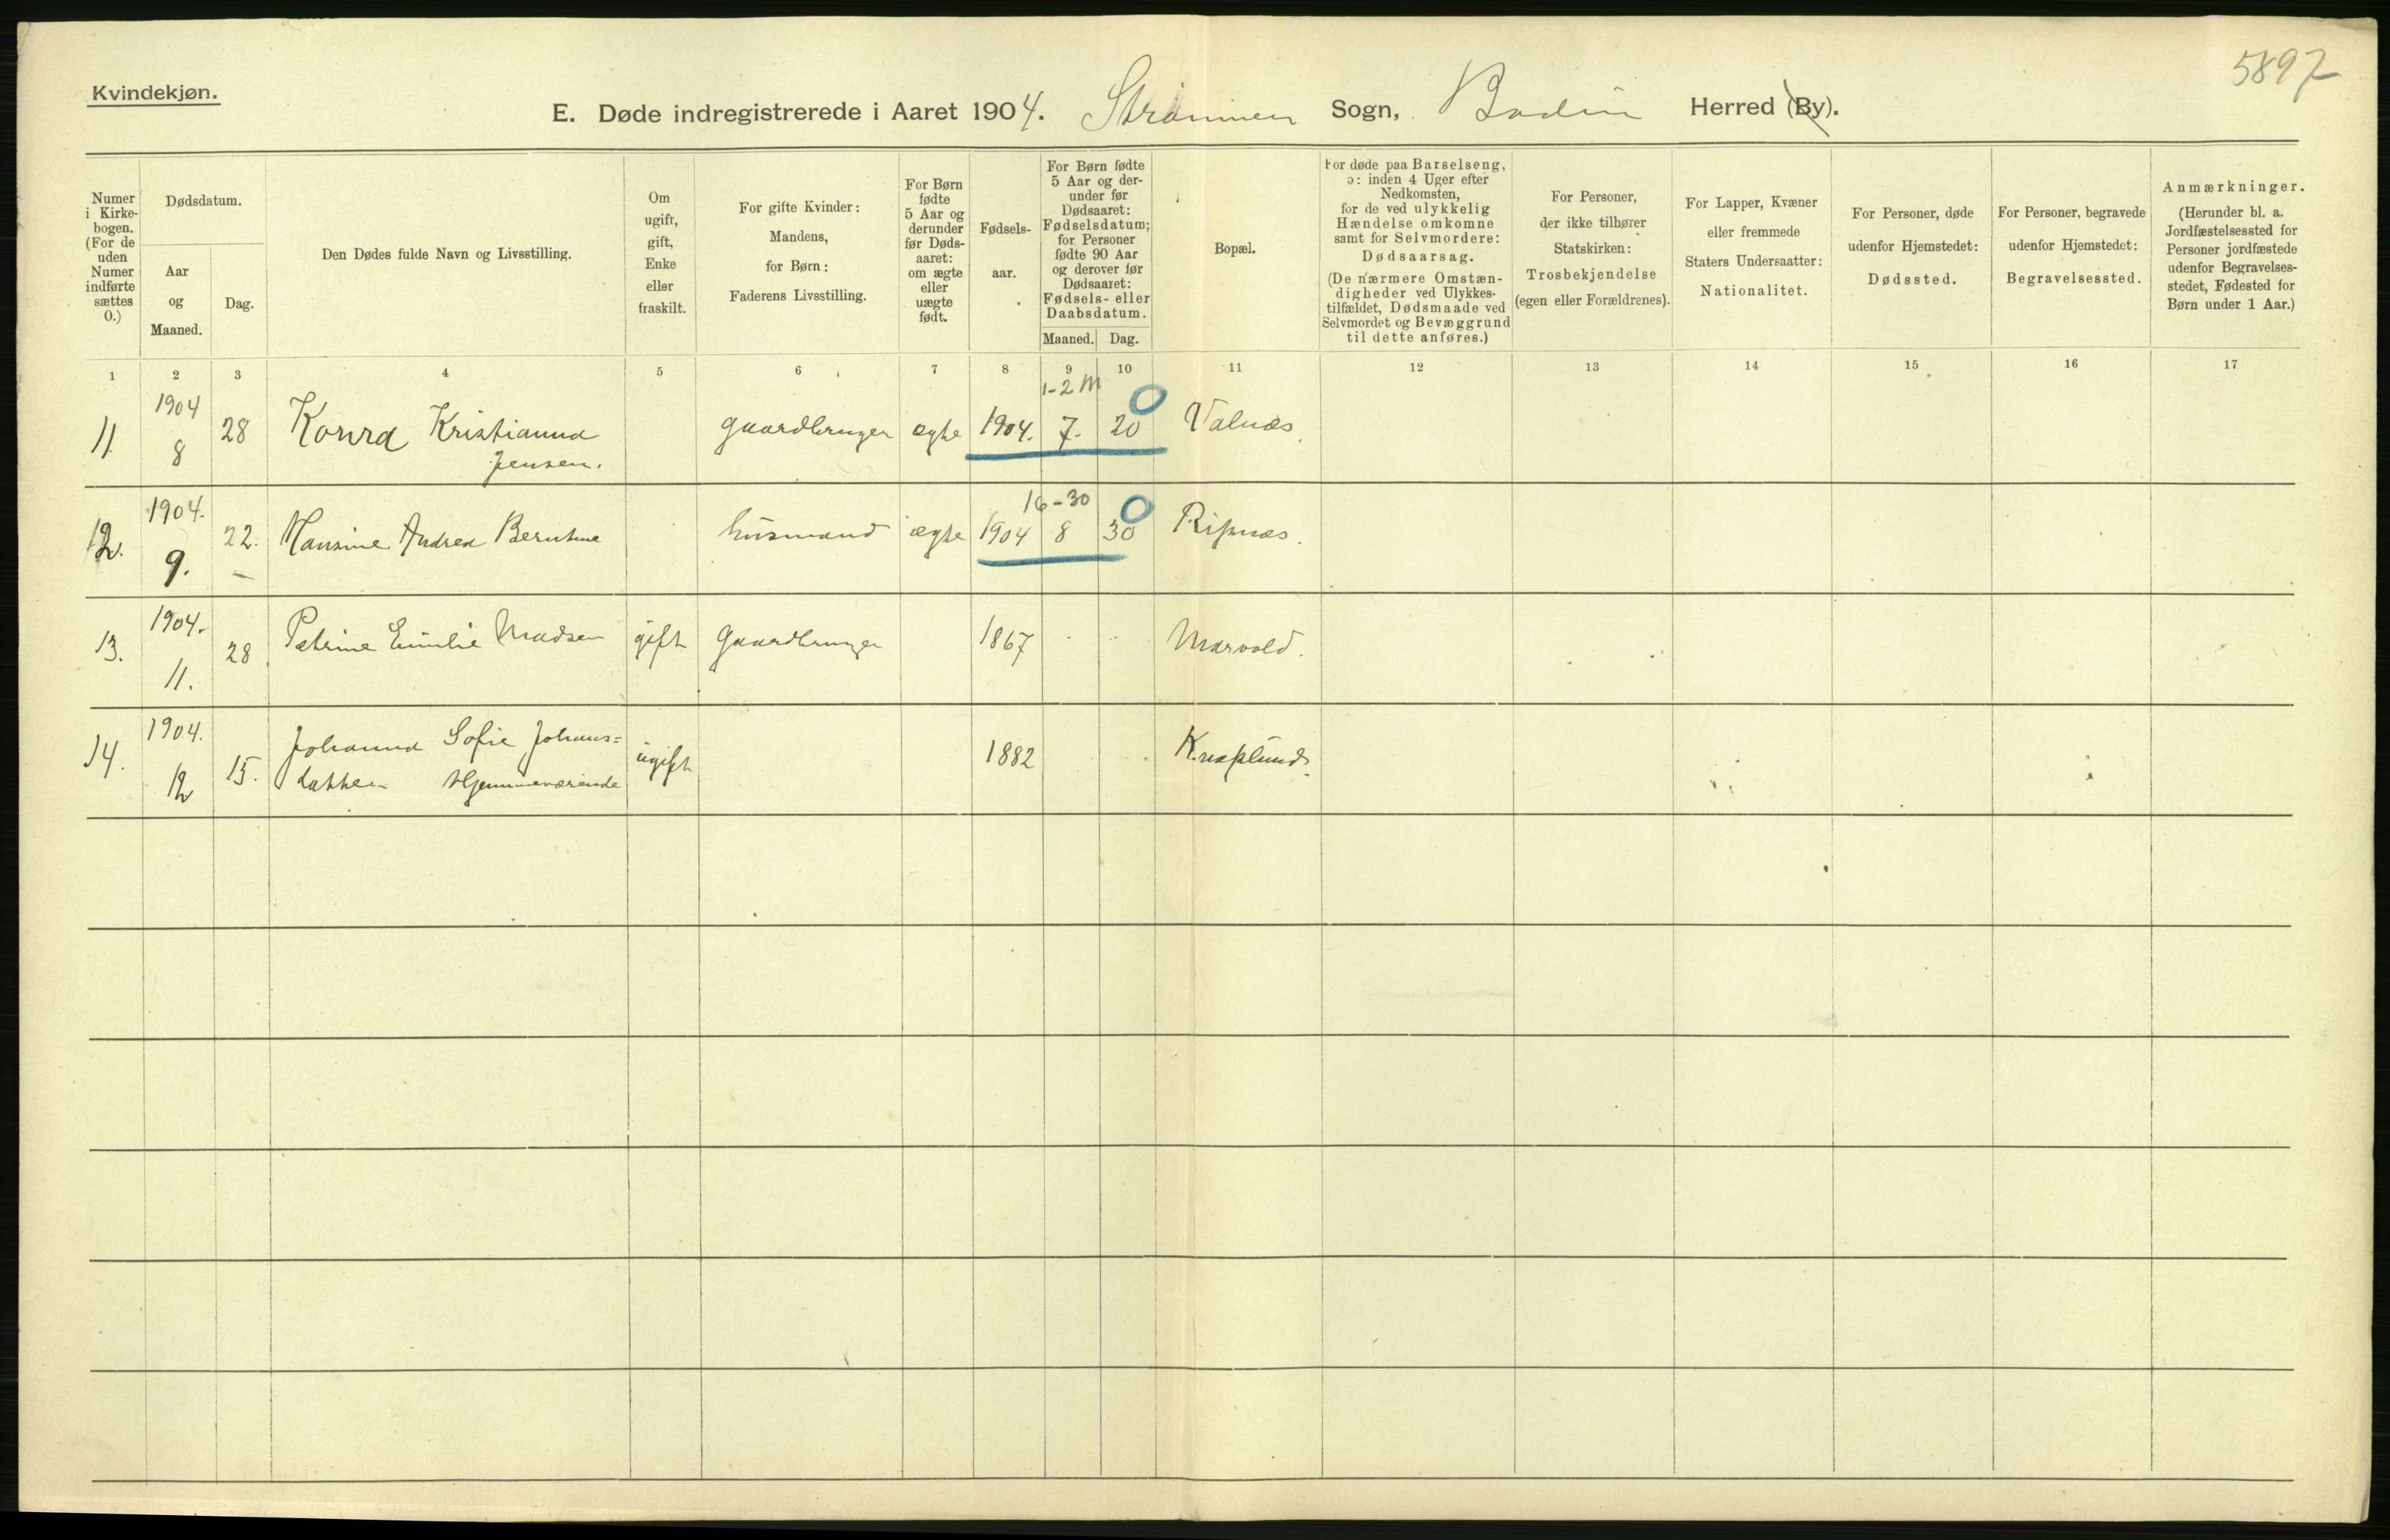 5897
Kvindekjøn.
E. Døde indregistrerede i Aaret 1904. Strømmen Sogn, Bodin Herred (By).
Numer i Kirkebogen. (For de uden Numer indførte sættes 0.)
Dødsdatum.
Aar og Maaned.
Dag.
Den Dødes fulde Navn og Livsstilling.
Om ugift, gift, Enke eller fraskilt.
For gifte Kvinder: Mandens, for Børn: Faderens Livsstilling.
For Børn fødte 5 Aar og derunder før Dødsaaret: om ægte eller uægte født.
Fødselsaar.
For Børn fødte 5 Aar og derunder før Dødsaaret: Fødselsdatum; for Personer fødte 90 Aar og derover før Dødsaaret: Fødsels- eller Daabsdatum.
Maaned. Dag.
Bopæl.
For døde paa Barselseng, ɔ: inden 4 Uger efter Nedkomsten, for de ved ulykkelig Hændelse omkomne samt for Selvmordere: Dødsaarsag.
(De nærmere Omstændigheder ved Ulykkestilfældet, Dødsmaade ved Selvmordet og Bevæggrund til dette anføres.)
For Personer, der ikke tilhører Statskirken: Trosbekjendelse (egen eller Forældrenes).
For Lapper, Kvæner eller fremmede Staters Undersaatter: Nationalitet.
For Personer, døde udenfor Hjemstedet: Dødssted.
For Personer, begravede udenfor Hjemstedet: Begravelsessted.
Anmærkninger. (Herunder bl. a. Jordfæstelsessted for Personer jordfæstede udenfor Begravelsesstedet, Fødested for Børn under 1 Aar.)
1 2 3 4 5 6 7 8 9 10 11 12 13 14 15 16 17
1-2 M 0
11 1904 8 28 Konra Kristianna gaardbruger ægte 1904. 7. 20 Valnæs.
Jensen.
16-30 0
12. 1904. 9. 22. Hansine Andrea Berntine husmand ægte 1904 8 30 Ripnæs.
13. 1904. 11. 28 Petrine Emilie Madsen gift Gaardbruger 1867 Marvold.
14. 1904. 12 15. Johanna Sofie Johans= ugift 1882 Knaplund.
datter Hjemmeværende